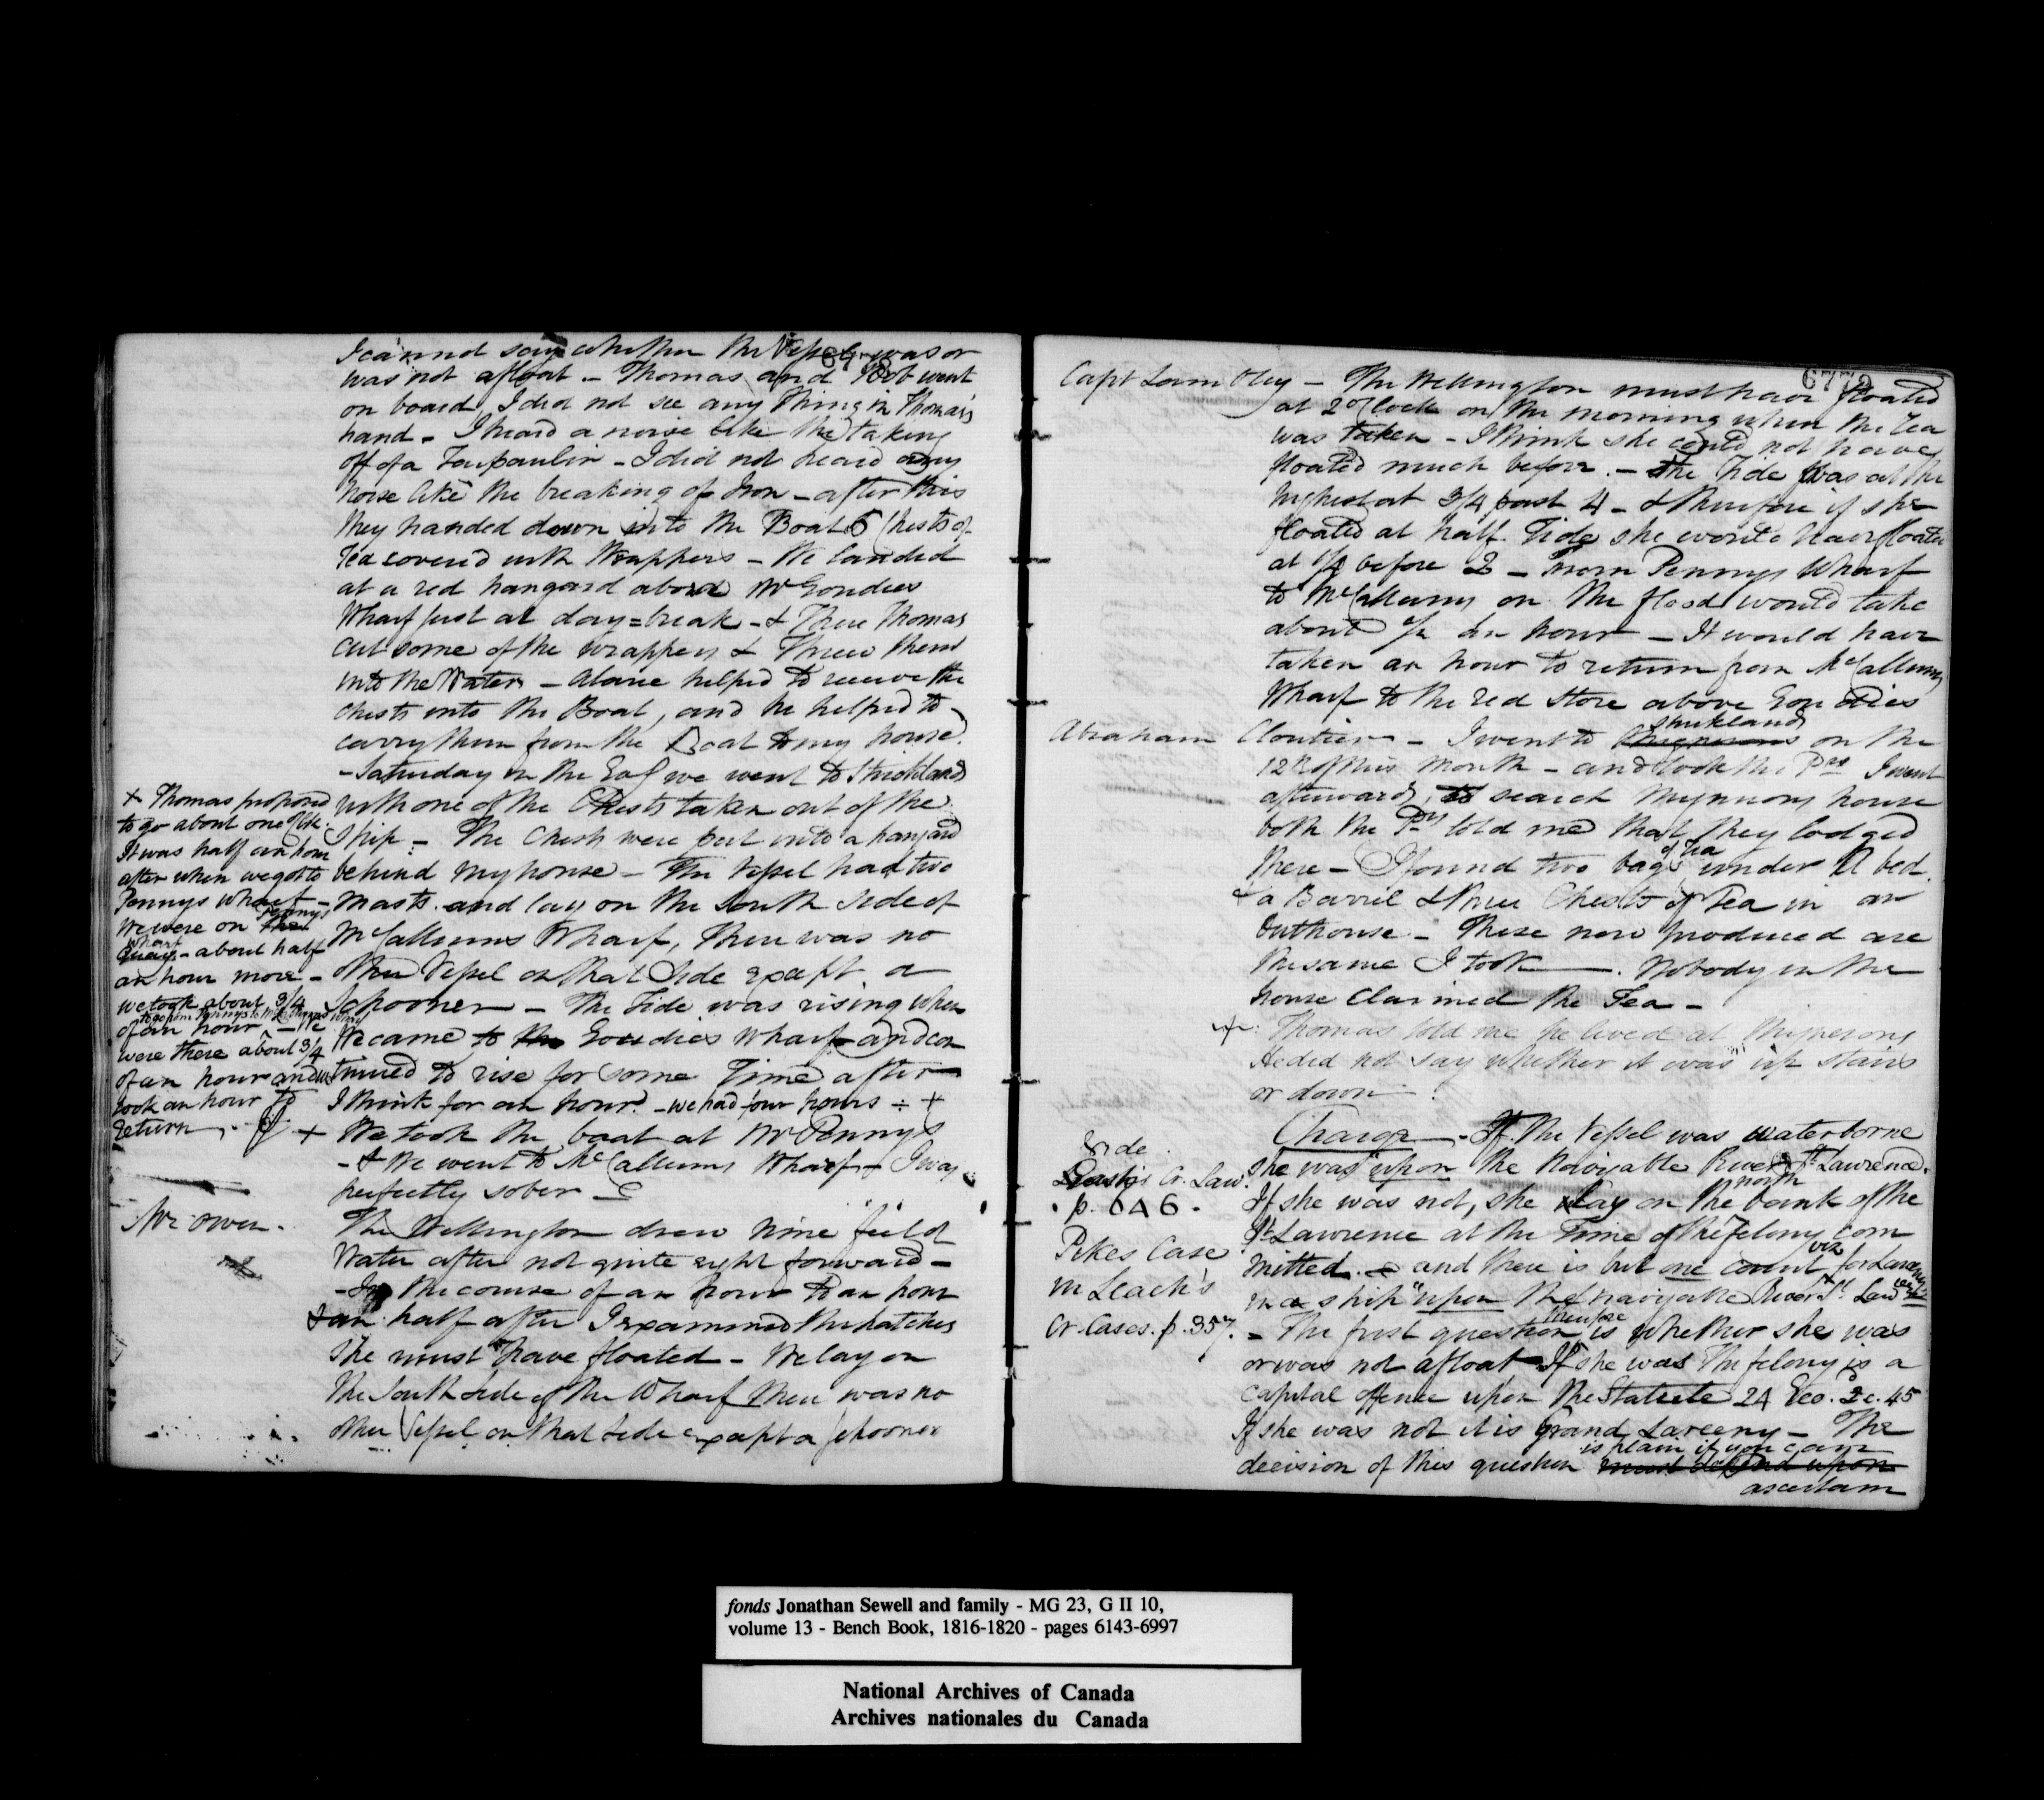 I cannot say whether the Vessel was or
was not afloat - Thomas and Bob went
on board I did not see any Thing in Thomas's
hand - I heard a noise like the taking
off of a Tarpaulin - I did not heard any
noise like the breaking of Iron - after this
they handed down into the Boat 6 Chests of
Tea covered with Wrappers - We landed
at a red hangard above Mr Goudies
Wharf just at day=break - & There Thomas
cut some of the wrappers & Threw them
into the Water - Alavie helped to receive the
chests into the Boat, and he helped to
carry them from the Boat to my house.
- Saturday in the we went to Strickland
with one of the Chests taken out of the
Ship - The Chests were put into a hangard
behind my house - The Vessel had two
masts and lay on the South side of
McCallums Wharf, There was no
other Vessel on that Side except a
Schooner - The Tide was rising when
We came to the Goudies Wharf and con
tinued to rise for some Time after
I think for an hour. - we had four hours - +
+ We took the boat at Mr Pennys
- & We went to McCallums Wharf - I was
perfectly sober -
+ Thomas proposed
to go about one oClk.
It was half an hour
after when we got to
Pennys Wharf -
We were on the Pennys
Quay Wharf - about half
an hour more -
we took about 3/4
to go from Pennys to McCallums Wharf
of an hour, - We
were there about 3/4
of an hour and we
took an hour to
return.
Mr Owen.
The Wellington drew nine feet of
Water after not quite eight forward -
- In the course of an hour to an hour
& an half after I examined the hatches
She must have floated - We lay on
The South side of the Wharf there was no
other Vessel on that side except a Schooner
6779
Capt Lambley - The Wellington must have floated
at 2 oClock on the morning when the Tea
was taken - I think she could not have
floated much before. - The Tide was at the
highest at 3/4 past 4 - & therefore if she
floated at half Tide she would have floated
at 1/4 before 2 - From Pennys Wharf
to McCallums on the flood would take
about 1/2 an hour - It would have
taken an hour to return from McCallums
Wharf to the red Store above Goudies
Abraham Cloutier - I went to Strickland on the
12th of this month - and took the Prs I went
afterwards, to search house
both the Prs told me that they lodged
there - I found two bags of Tea under a bed
& a Barril & three Chests of Tea in an
Outhouse - These now produced are
the same I took -. Nobody in the
house Claimed the Tea -
+ Thomas told me he lived at
He did not say whether it was up stairs
or down.
Charge - If the Vessel was waterborne
she was "upon the Navigable River St Lawrence.
If she was not, she lay on the north bank of the
St Lawrence at the Time of the felony com
mitted. - and there is but one count viz for Larceny
in a ship "upon the navigable River St Lawrence
- The first question therefore is whether she was
or was not afloat If she was The felony is a
capital offence upon the Statute 24 Geo. 2 c. 45
If she was not it is Grand Larceny - The
decision of this question must depend upon is plain if you can
ascertain
Vide
Easts Cr. Law.
p. 646.
Pikes Case
in Leach's
Cr. Cases. p. 357.
fonds Jonathan Sewell and family - MG 23, G II 10,
volume 13 - Bench Book, 1816-1820 - pages 6143-6997
National Archives of Canada
Archives nationales du Canada